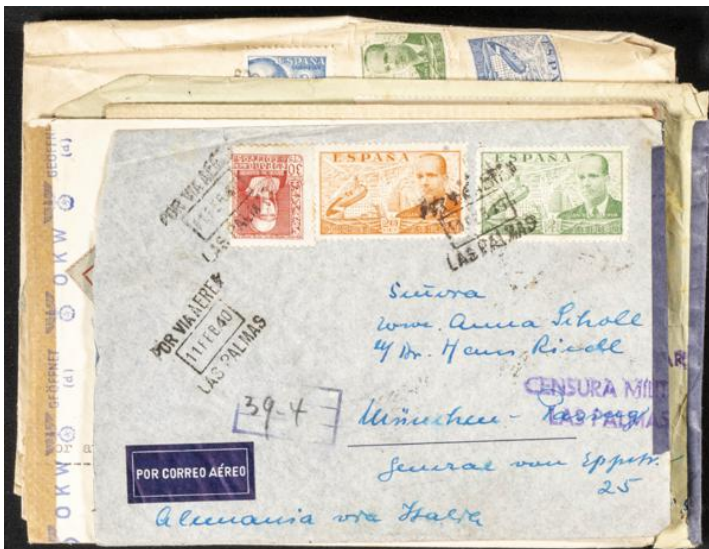 ESPAÑA
ESPAÑA ESPAÑA
POR VIA AEREA
11 FEB 40
LAS PALMAS
POR VIA AEREA
11 FEB 40
LAS PALMAS
POR VIA AEREA
11 FEB 40
LAS PALMAS
30
Señora
wwe. Anna Scholl
c/ Dr. Hans Riedl
39-4
CENSURA MILIT
LAS PALMAS
München - Pasing
General von Eppstr.
25
POR CORREO AÉREO
Alemania via Italia
GEÖFFNET
(d)
OKW
GEÖFFNET
(d)
OKW